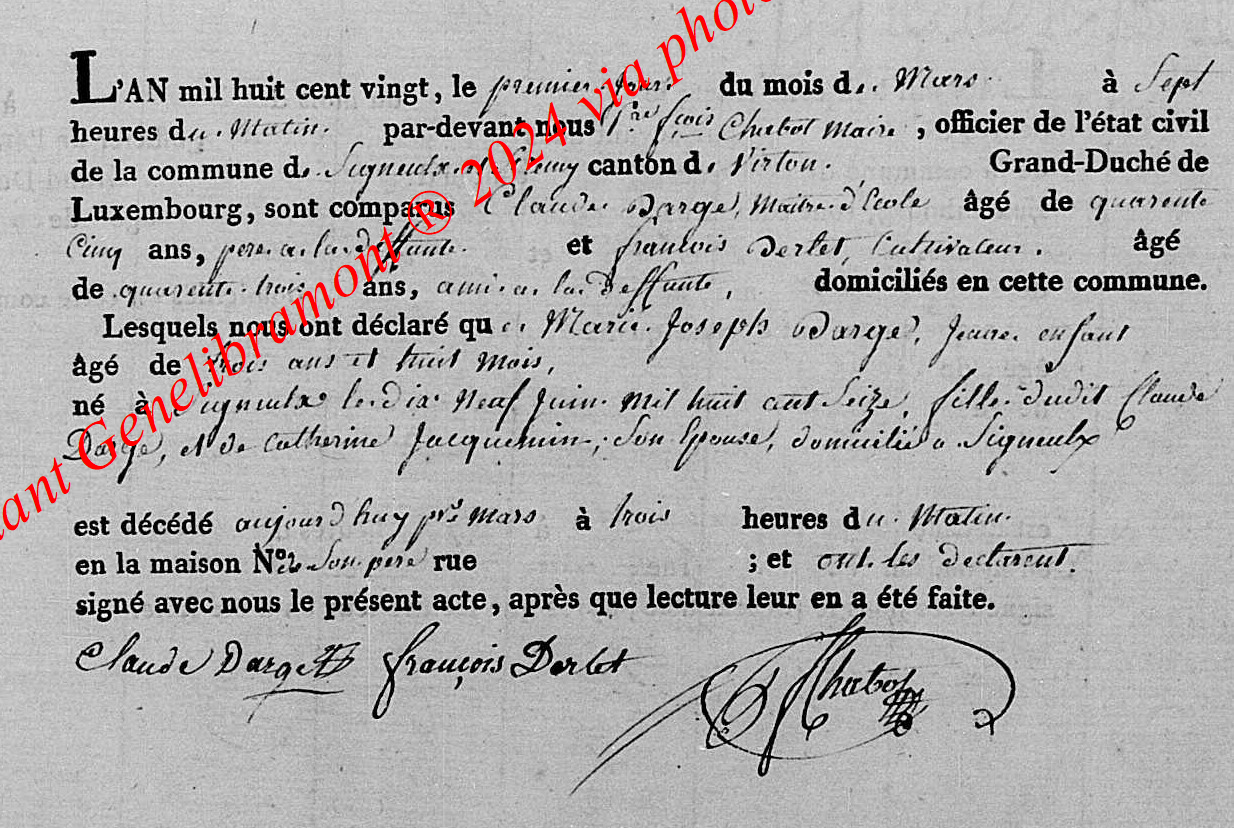 L'AN mil huit cent vingt, le premier jour du mois de Mars à Sept
heures du Matin par-devant nous fçois Chabot Maire, officier de l'état civil
de la commune de Signeulx canton de Virton. Grand-Duché de
Luxembourg, sont comparus Claude Darge, Maitre d'Ecole âgé de quarente
Cinq ans, pere a la deffunte et françois Derlet, Cultivateur. âgé
de quarente trois ans, ami a la deffunte, domiciliés en cette commune.
Lesquels nous ont déclaré que Marie Joseph Darge, Jeune enfant
âgé de trois ans et huit Mois,
né à Signeulx le dix Neuf Juin Mil huit cent Seize, fille dudit Claude
Darge, et de Catherine Jacquemin, Son Epouse, domicilié a Signeulx
est décédé aujourd'huy pr Mars à trois heures du Matin
en la maison N.º de Son pere rue ; et ont les declarent
signé avec nous le présent acte, après que lecture leur en a été faite.
Claude Darge françois Derlet Chabot
ant Genelibramont ® 2024 via photo